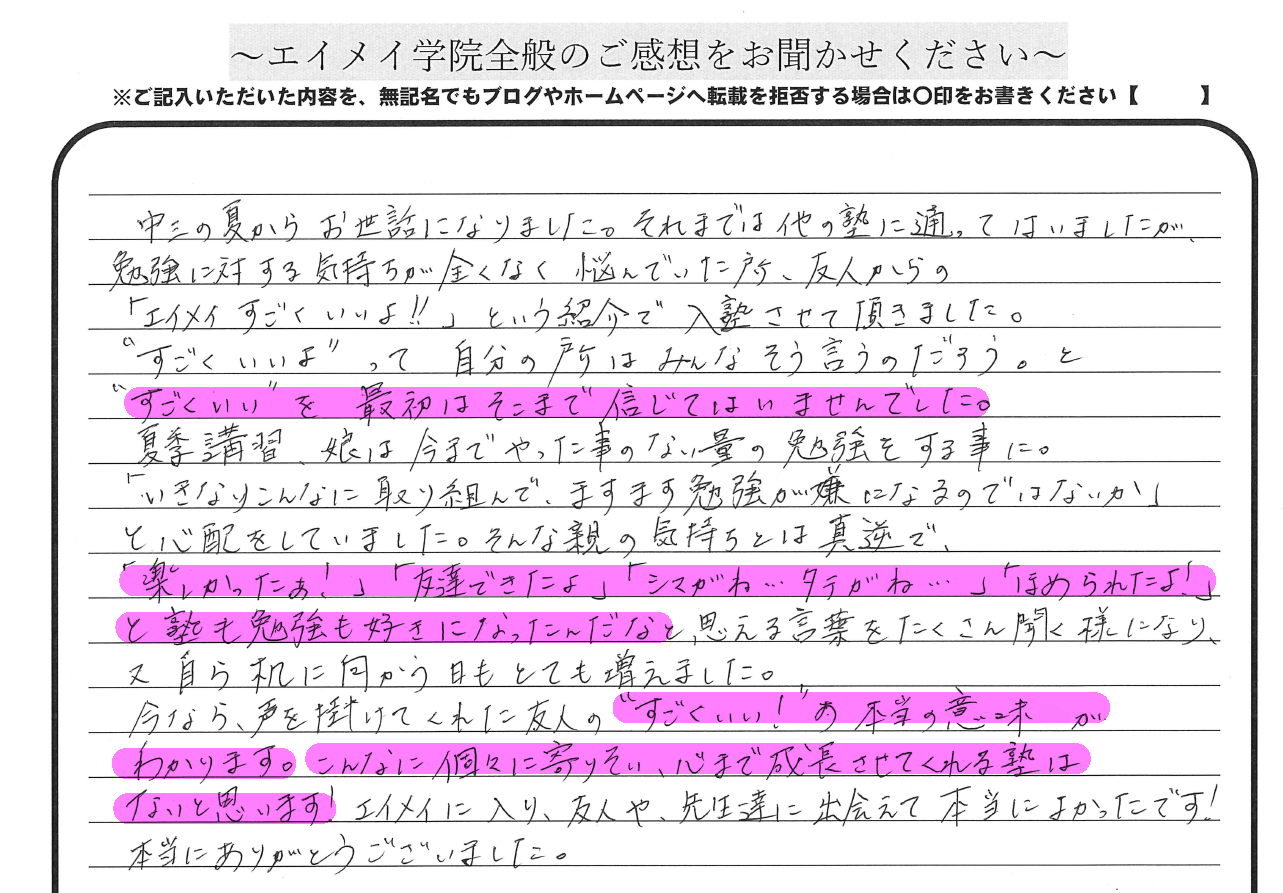 ～エイメイ学院全般のご感想をお聞かせください～
※ご記入いただいた内容を、無記名でもブログやホームページへ転載を拒否する場合は〇印をお書きください【　　】
中三の夏からお世話になりました。それまでは他の塾に通ってはいましたが、
勉強に対する気持ちが全くなく悩んでいた所、友人からの
「エイメイすごくいいよ!!」という紹介で入塾させて頂きました。
"すごくいいよ"って自分の所はみんなそう言うのだろう。と
"すごくいい"を最初はそこまで信じてはいませんでした。
夏季講習、娘は今までやった事のない量の勉強をする事に。
「いきなりこんなに取り組んで、ますます勉強が嫌になるのではないか」
と心配をしていました。そんな親の気持ちとは真逆で、
「楽しかったぁ!」「友達できたよ」「シマがね…タテがね…」「ほめられたよ!」
と塾も勉強も好きになったんだなと、思える言葉をたくさん聞く様になり、
又自ら机に向かう日もとても増えました。
今なら、声を掛けてくれた友人の"すごくいい!"の本当の意味が
わかります。こんなに個々に寄りそい、心まで成長させてくれる塾は
ないと思います!エイメイに入り、友人や、先生達に出会えて本当によかったです!
本当にありがとうございました。